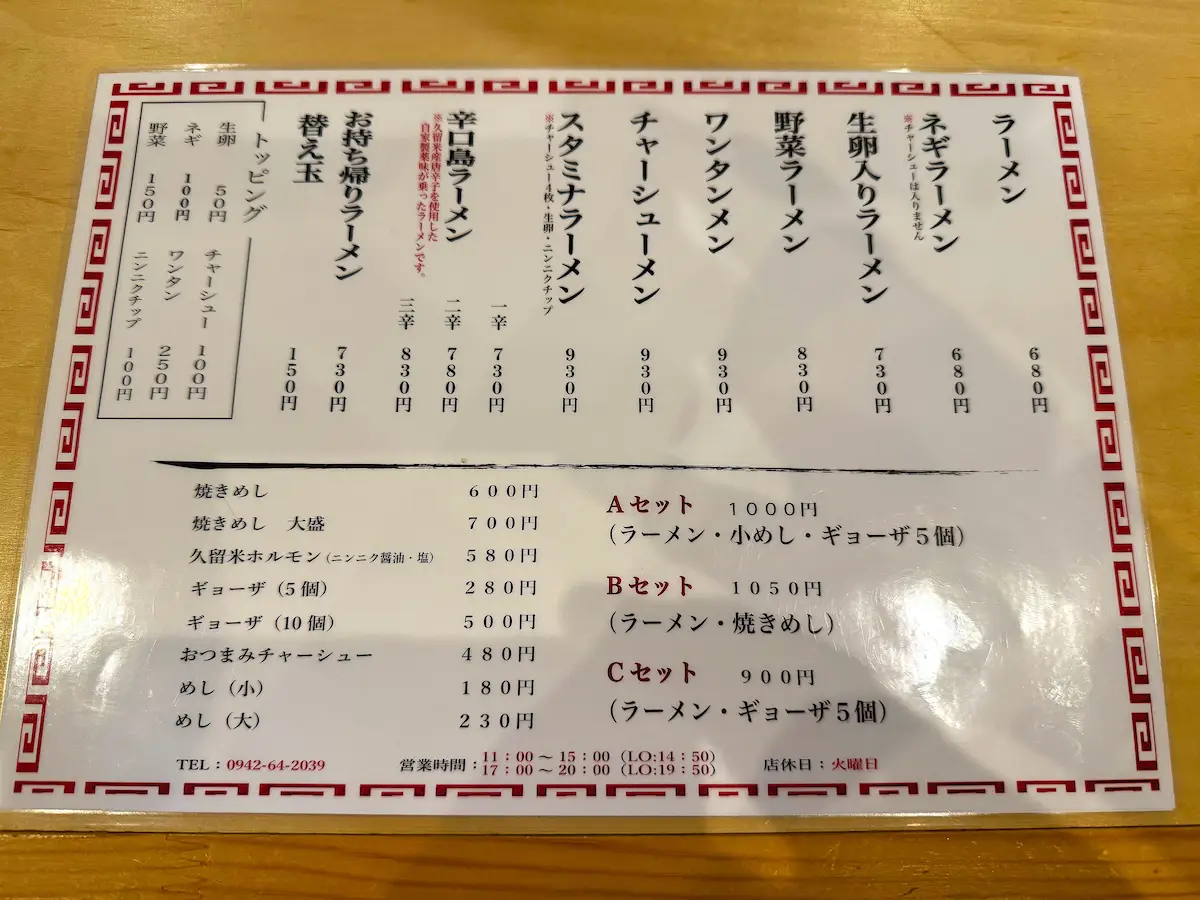 ラーメン 680円
ネギラーメン 680円
※チャーシューは入りません
生卵入りラーメン 730円
野菜ラーメン 830円
ワンタンメン 930円
チャーシューメン 930円
スタミナラーメン 930円
※チャーシュー4枚・生卵・ニンニクチップ
辛口島ラーメン
※久留米産唐辛子を使用した
自家製薬味が乗ったラーメンです。
一辛 730円
二辛 780円
三辛 830円
お持ち帰りラーメン 730円
替え玉 150円
トッピング
生卵 50円
ネギ 100円
野菜 150円
チャーシュー 100円
ワンタン 250円
ニンニクチップ 100円
焼きめし 600円
焼きめし 大盛 700円
久留米ホルモン(ニンニク醤油・塩) 580円
ギョーザ(5個) 280円
ギョーザ(10個) 500円
おつまみチャーシュー 480円
めし(小) 180円
めし(大) 230円
Aセット 1000円
(ラーメン・小めし・ギョーザ5個)
Bセット 1050円
(ラーメン・焼きめし)
Cセット 900円
(ラーメン・ギョーザ5個)
TEL:0942-64-2039
営業時間:11:00~15:00(LO:14:50)
17:00~20:00(LO:19:50)
店休日:火曜日